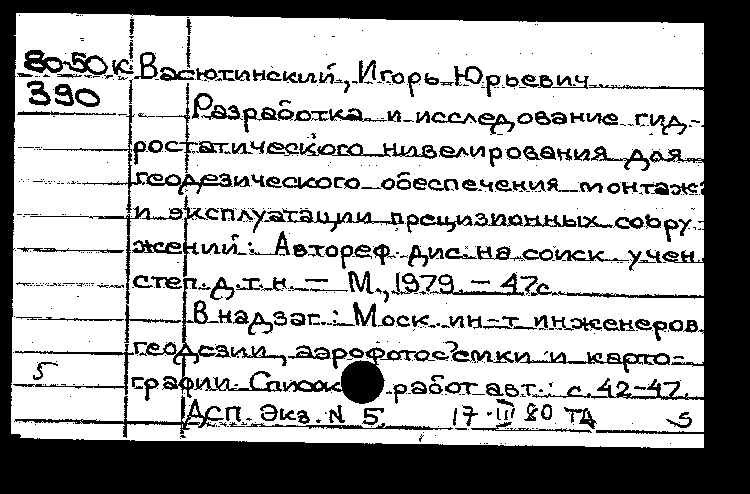 80-50к Васютинский, Игорь Юрьевич
390 Разработка и исследование гид-
ростатического нивелирования для
геодезического обеспечения монтажа
и эксплуатации прецизионных сору-
жений: Автореф. дис. на соиск. учен.
степ. д.т.н. — М., 1979. — 47с.
В надзаг.: Моск. ин-т инженеров
геодезии, аэрофотосъемки и карто-
5 графии. Список работ авт.: с. 42-47.
ДСП. Экз. N 5. 17·III 80 ТА 5